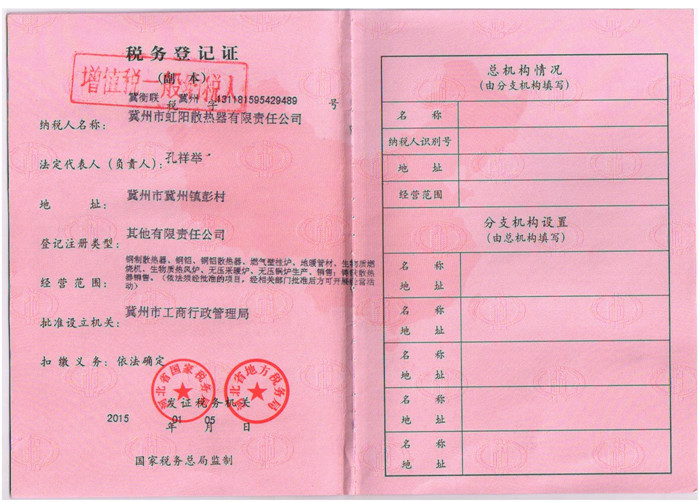 税务登记证
(副本)
增值税一般纳税人
冀衡联 冀州 131181595429489
税 字 号
纳税人名称: 冀州市虹阳散热器有限责任公司
法定代表人(负责人): 孔祥举
地 址: 冀州市冀州镇彭村
登记注册类型: 其他有限责任公司
钢制散热器、铜铝、钢铝散热器、燃气壁挂炉、地暖管材、生物质燃
烧机、生物质热风炉、无压采暖炉、无压锅炉生产、销售;铸铁散热
器销售。(依法须经批准的项目,经相关部门批准后方可开展经营活
动)
经营范围:
批准设立机关: 冀州市工商行政管理局
扣缴义务: 依法确定
河北省国家税务局
河北省地方税务局
发证税务机关
2015 年 01 月 05 日
国家税务总局监制
总机构情况
(由分支机构填写)
名 称
纳税人识别号
地 址
经营范围
分支机构设置
(由总机构填写)
名 称
地 址
名 称
地 址
名 称
地 址
名 称
地 址
名 称
地 址